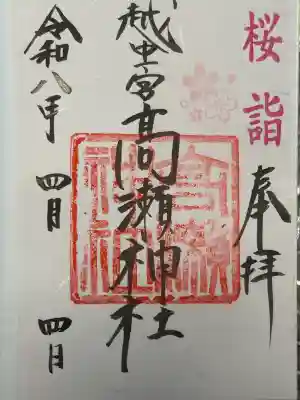 桜詣
奉拝
越中一宮高瀬神社
令和八年 四月 四日